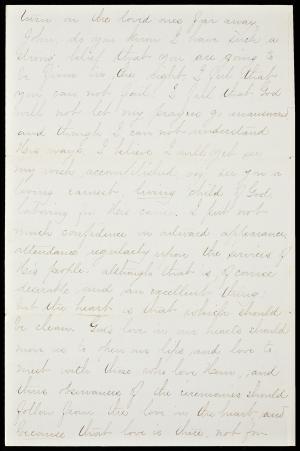 turn in the loved ones far away.
John, do you know I have such a
strong belief that you are going to
be for the right I feel that
you can not fail. I feel that God
will not let my prayers go unanswered
and though I can not understand
His ways I believe I will yet see
my wish accomplished, see you a
loving earnest, living child of God,
laboring for His cause. I put not
much confidence in outward appearance,
attendance regularly upon the services of
His people. although that is of course
desirable and an excellent thing
but the heart is that which should
be clean. God's love in our hearts should
move us to and love to
meet with those who love Him, and
this observances of the ceremonies should
follow from the love in the heart, and
because that love is there, not for